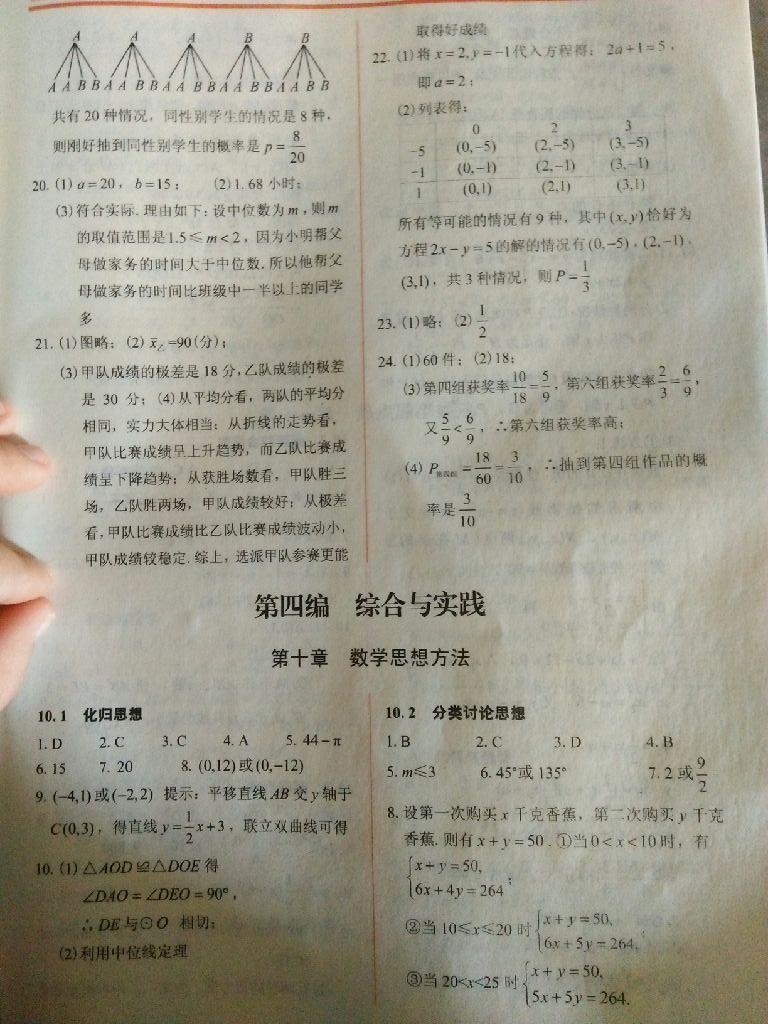 A A A B B
A A B B A A B B A A B B A A A B A A A B
共有 20 种情况，同性别学生的情况是 8 种，
则刚好抽到同性别学生的概率是 p = 8/20
20. (1) a = 20，b = 15； (2) 1.68 小时；
(3) 符合实际. 理由如下：设中位数为 m，则 m
的取值范围是 1.5 ≤ m < 2，因为小明帮父
母做家务的时间大于中位数. 所以他帮父
母做家务的时间比班级中一半以上的同学
多
21. (1) 图略；(2) x̄乙 =90(分)；
(3) 甲队成绩的极差是 18 分，乙队成绩的极差
是 30 分；(4) 从平均分看，两队的平均分
相同，实力大体相当；从折线的走势看，
甲队比赛成绩呈上升趋势，而乙队比赛成
绩呈下降趋势；从获胜场数看，甲队胜三
场，乙队胜两场，甲队成绩较好；从极差
看，甲队比赛成绩比乙队比赛成绩波动小，
甲队成绩较稳定. 综上，选派甲队参赛更能
取得好成绩
22. (1) 将 x = 2, y = −1 代入方程得：2a + 1 = 5，
即 a = 2；
(2) 列表得：
0 2 3
−5 (0,−5) (2,−5) (3,−5)
−1 (0,−1) (2,−1) (3,−1)
1 (0,1) (2,1) (3,1)
所有等可能的情况有 9 种，其中 (x, y) 恰好为
方程 2x − y = 5 的解的情况有 (0,−5)，(2,−1)，
(3,1)，共 3 种情况，则 P = 1/3
23. (1) 略；(2) 1/2
24. (1) 60 件；(2) 18；
(3) 第四组获奖率 10/18 = 5/9，第六组获奖率 2/3 = 6/9，
又 5/9 < 6/9，∴第六组获奖率高；
(4) P第四组 = 18/60 = 3/10，∴抽到第四组作品的概
率是 3/10
第四编 综合与实践
第十章 数学思想方法
10.1 化归思想
1. D 2. C 3. C 4. A 5. 44 − π
6. 15 7. 20 8. (0,12) 或 (0,−12)
9. (−4,1) 或 (−2,2) 提示：平移直线 AB 交 y 轴于
C(0,3)，得直线 y = 1/2 x + 3，联立双曲线可得
10. (1) △AOD ≌ △DOE 得
∠DAO = ∠DEO = 90°，
∴ DE 与⊙O 相切；
(2) 利用中位线定理
10.2 分类讨论思想
1. B 2. C 3. D 4. B
5. m ≤ 3 6. 45°或 135° 7. 2 或 9/2
8. 设第一次购买 x 千克香蕉，第二次购买 y 千克
香蕉. 则有 x + y = 50. ①当 0 < x < 10 时，有
{x + y = 50,
6x + 4y = 264；
②当 10 ≤ x ≤ 20 时 {x + y = 50,
6x + 5y = 264.
③当 20 < x < 25 时 {x + y = 50,
5x + 5y = 264.